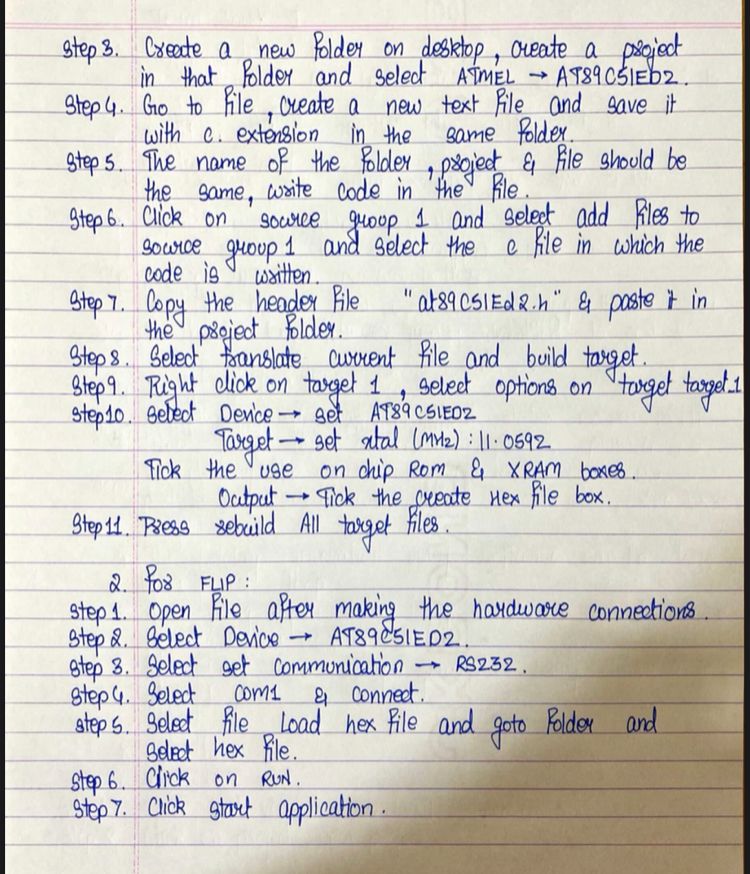 Step 3. Create a new folder on desktop, create a project
in that folder and select ATMEL → AT89C51ED2.
Step 4. Go to file, create a new text file and save it
with c. extension in the same folder.
Step 5. The name of the folder, project & file should be
the same, write code in the file.
Step 6. Click on source group 1 and select add files to
source group 1 and select the c file in which the
code is written.
Step 7. Copy the header file "at89C51Ed2.h" & paste it in
the project folder.
Step 8. Select translate current file and build target.
Step 9. Right click on target 1, select options on target target 1
Step 10. Select Device → set AT89C51ED2
Target → set xtal (MHz) : 11.0592
Tick the use on chip Rom & XRAM boxes.
Output → Tick the create Hex file box.
Step 11. Press rebuild All target files.
2. For FLIP :
Step 1. Open file after making the hardware connections.
Step 2. Select Device → AT89C51ED2.
Step 3. Select set communication → RS232.
Step 4. Select COM1 & connect.
Step 5. Select file Load hex file and goto folder and
select hex file.
Step 6. Click on RUN.
Step 7. Click start application.